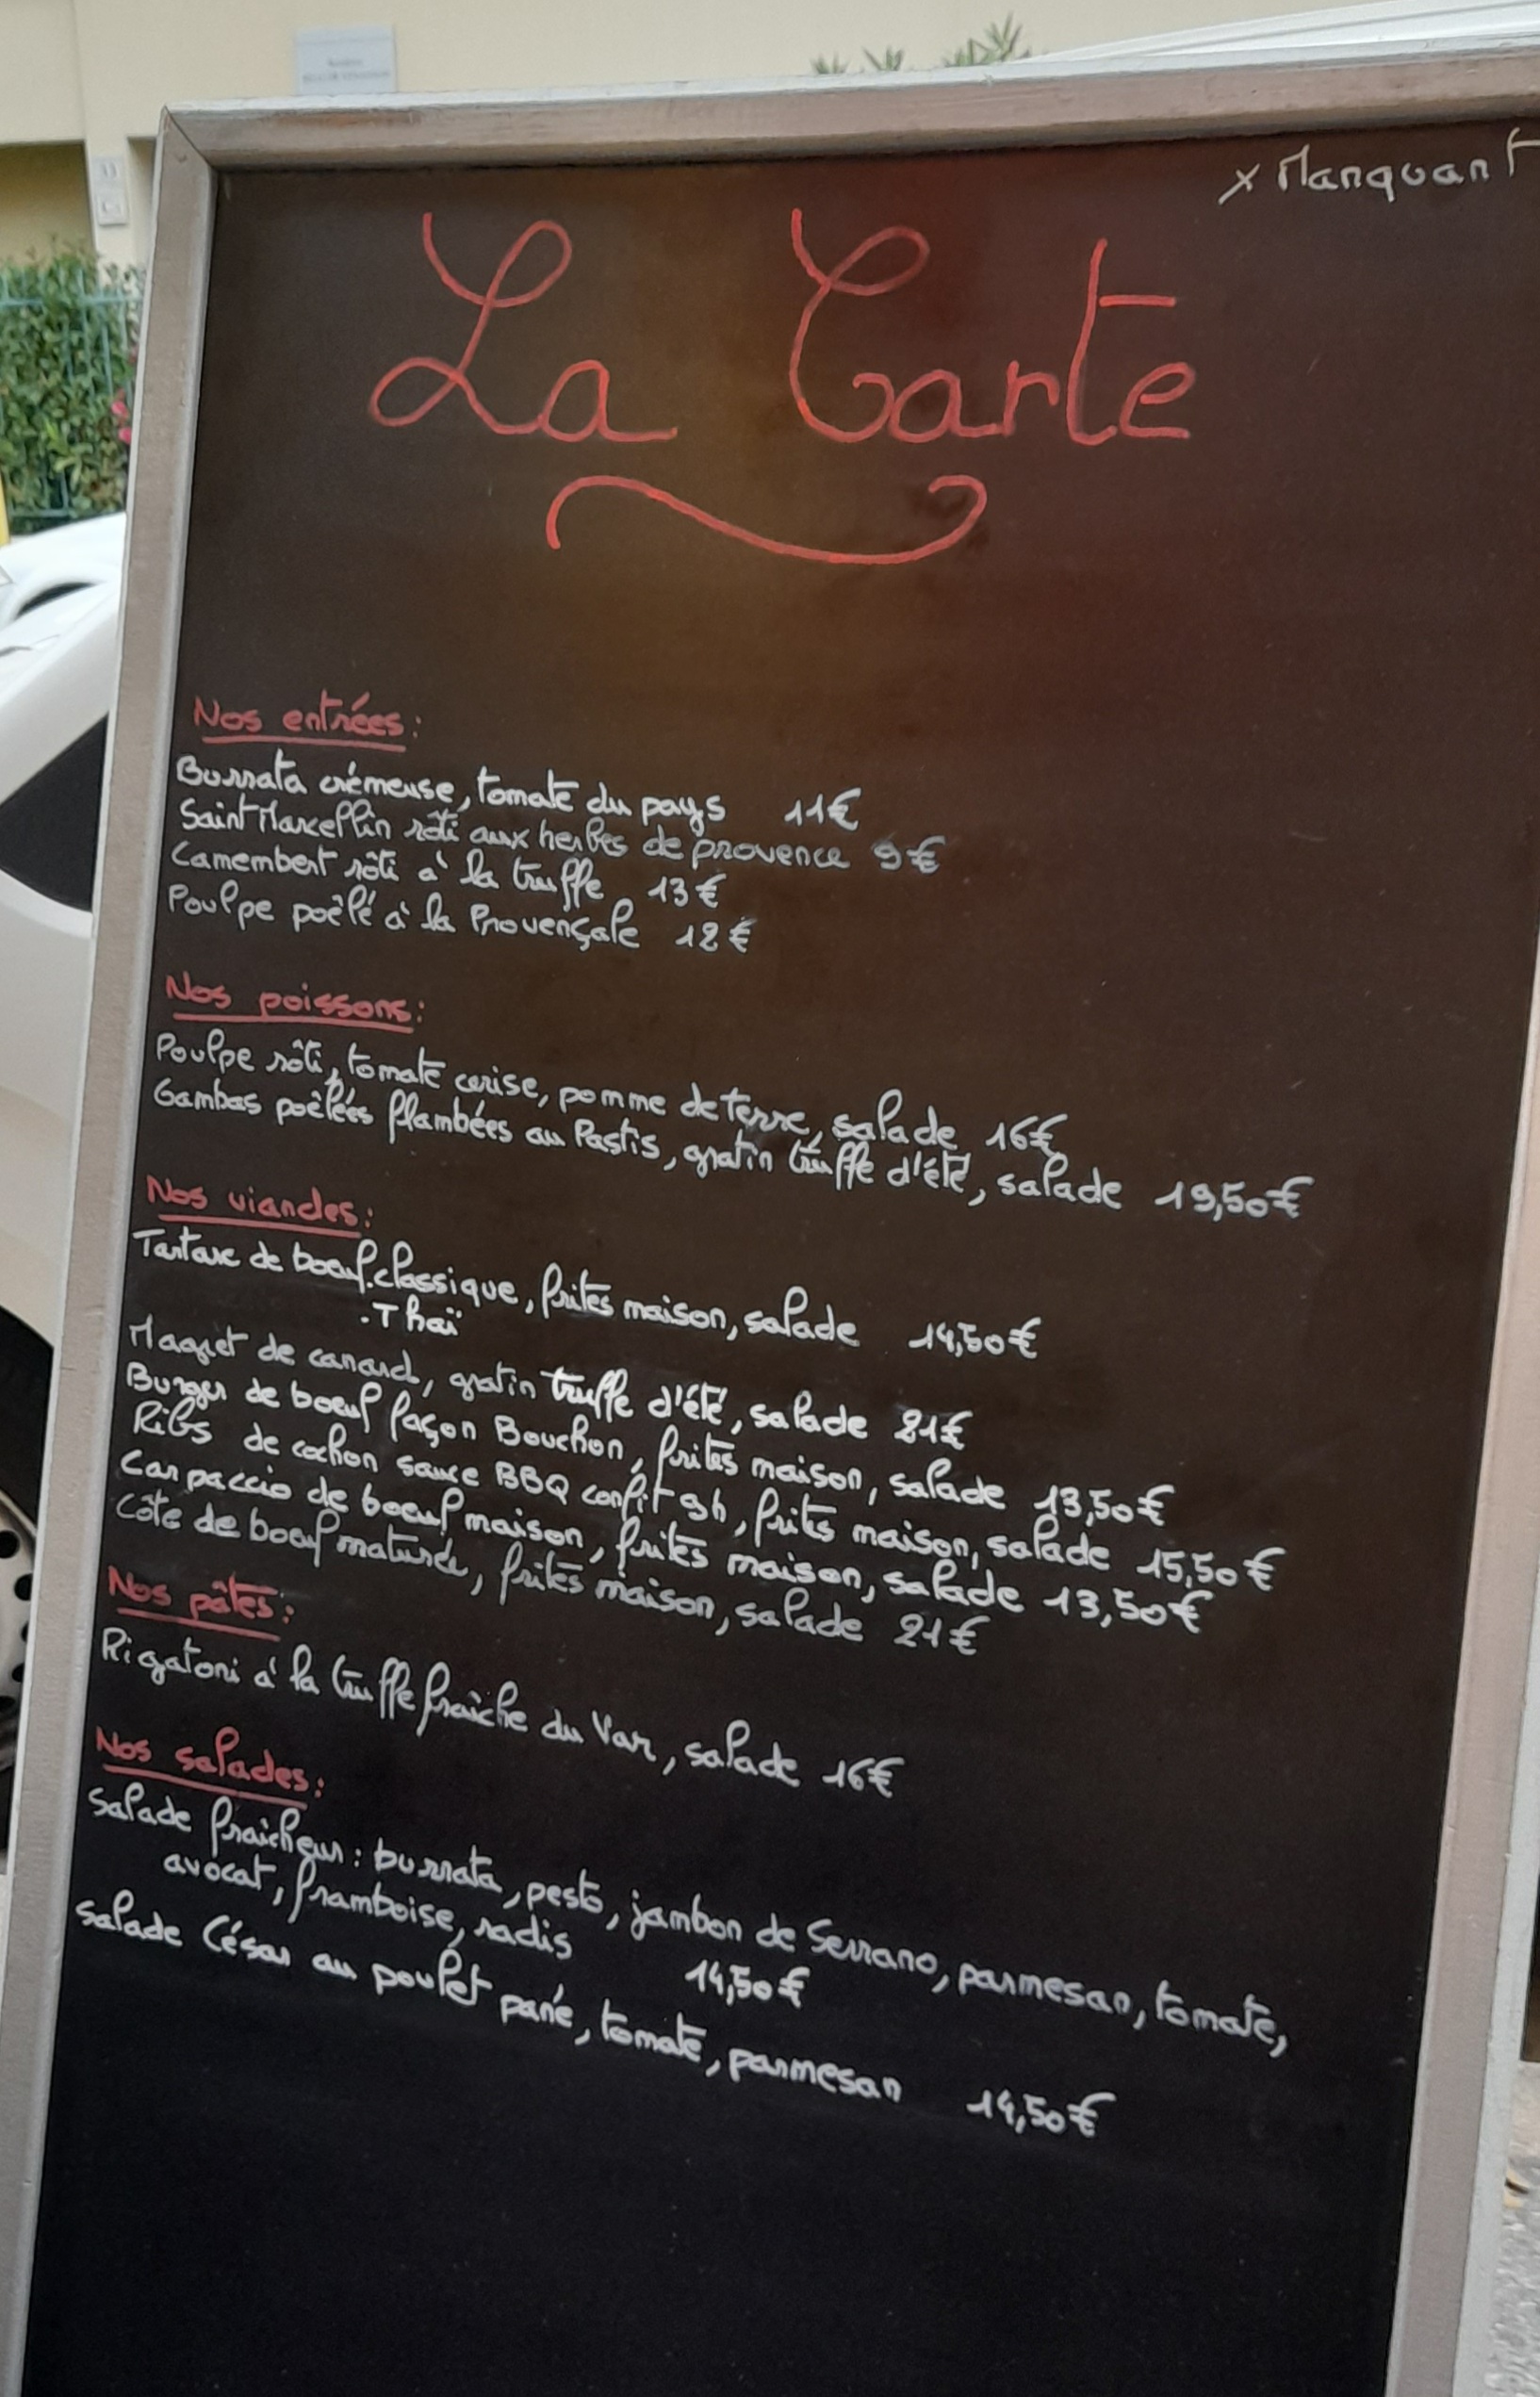 x Manquant
La Carte
Nos entrées:
Burrata crémeuse, tomate du pays 11€
Saint Marcellin rôti aux herbes de provence 9€
Camembert rôti à la truffe 13€
Poulpe poêlé à la Provençale 12€
Nos poissons:
Poulpe rôti, tomate cerise, pomme de terre, salade 16€
Gambas poêlées flambées au Pastis, gratin truffe d'été, salade 19,50€
Nos viandes:
Tartare de boeuf.classique, frites maison, salade 14,50€
.Thaï
Magret de canard, gratin truffe d'été, salade 21€
Burger de boeuf façon Bouchon, frites maison, salade 13,50€
Ribs de cochon sauce BBQ confit 9h, frites maison, salade 15,50€
Carpaccio de boeuf maison, frites maison, salade 13,50€
Côte de boeuf maturée, frites maison, salade 21€
Nos pâtes:
Rigatoni à la truffe fraîche du Var, salade 16€
Nos salades:
Salade fraîcheur: burrata, pesto, jambon de Serrano, parmesan, tomate,
avocat, framboise, radis 14,50€
Salade César au poulet pané, tomate, parmesan 14,50€